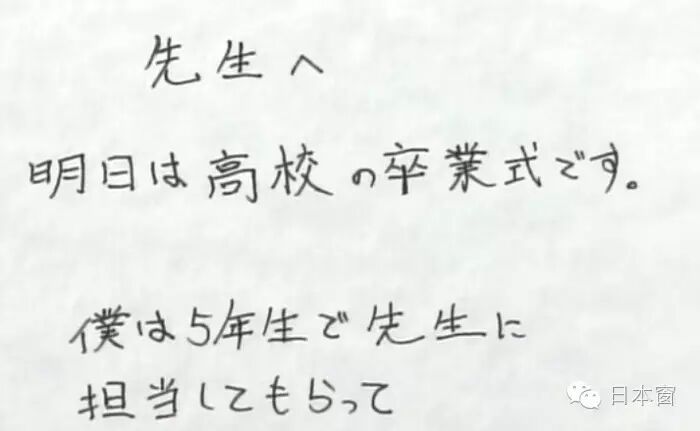 先生へ
明日は高校の卒業式です。
僕は5年生で先生に
担当してもらって
日本窗